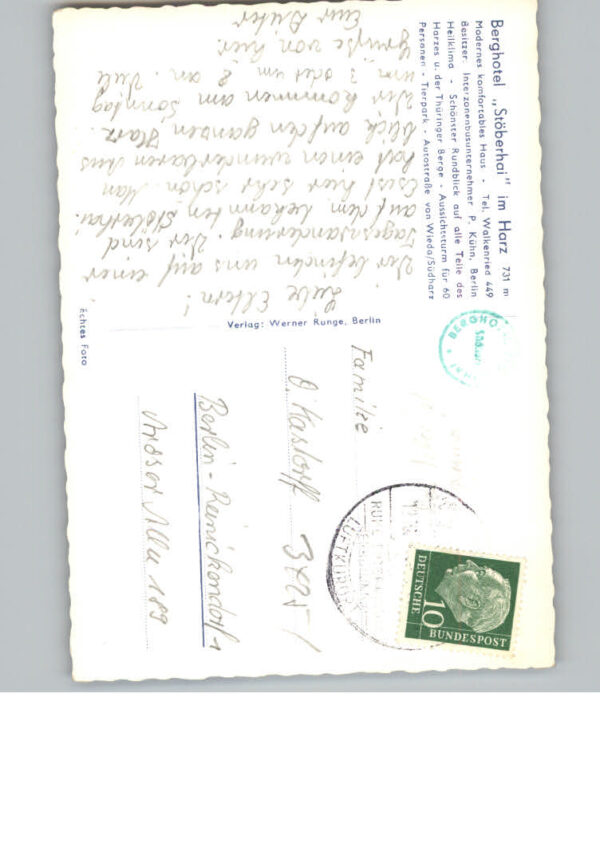 Berghotel „Stöberhai" im Harz 731 m
Modernes komfortables Haus - Tel. Walkenried 449
Besitzer: Interzonenbusunternehmer P. Kühn, Berlin
Heilklima - Schönster Rundblick auf alle Teile des
Harzes u. der Thüringer Berge - Aussichtsturm für 60
Personen - Tierpark - Autostraße von Wieda/Südharz
Liebe Eltern!
Wir befinden uns auf einer
Tageswanderung. Wir sind
auf dem bekannten Stöberhai.
Es ist hier sehr schön. Man
hat einen wunderbaren
blick auf den ganzen Harz.
Wir kommen am Sonntag
um 7 oder um 8 an. Viele
Grüße von hier.
Euer Dieter
Verlag: Werner Runge, Berlin
Echtes Foto
BERGHO
Südharz
LUFTKURORT
DEUTSCHE
BUNDESPOST
10
Familie
O. Kastorff
Berlin-Reinickendorf 1
Allee 189